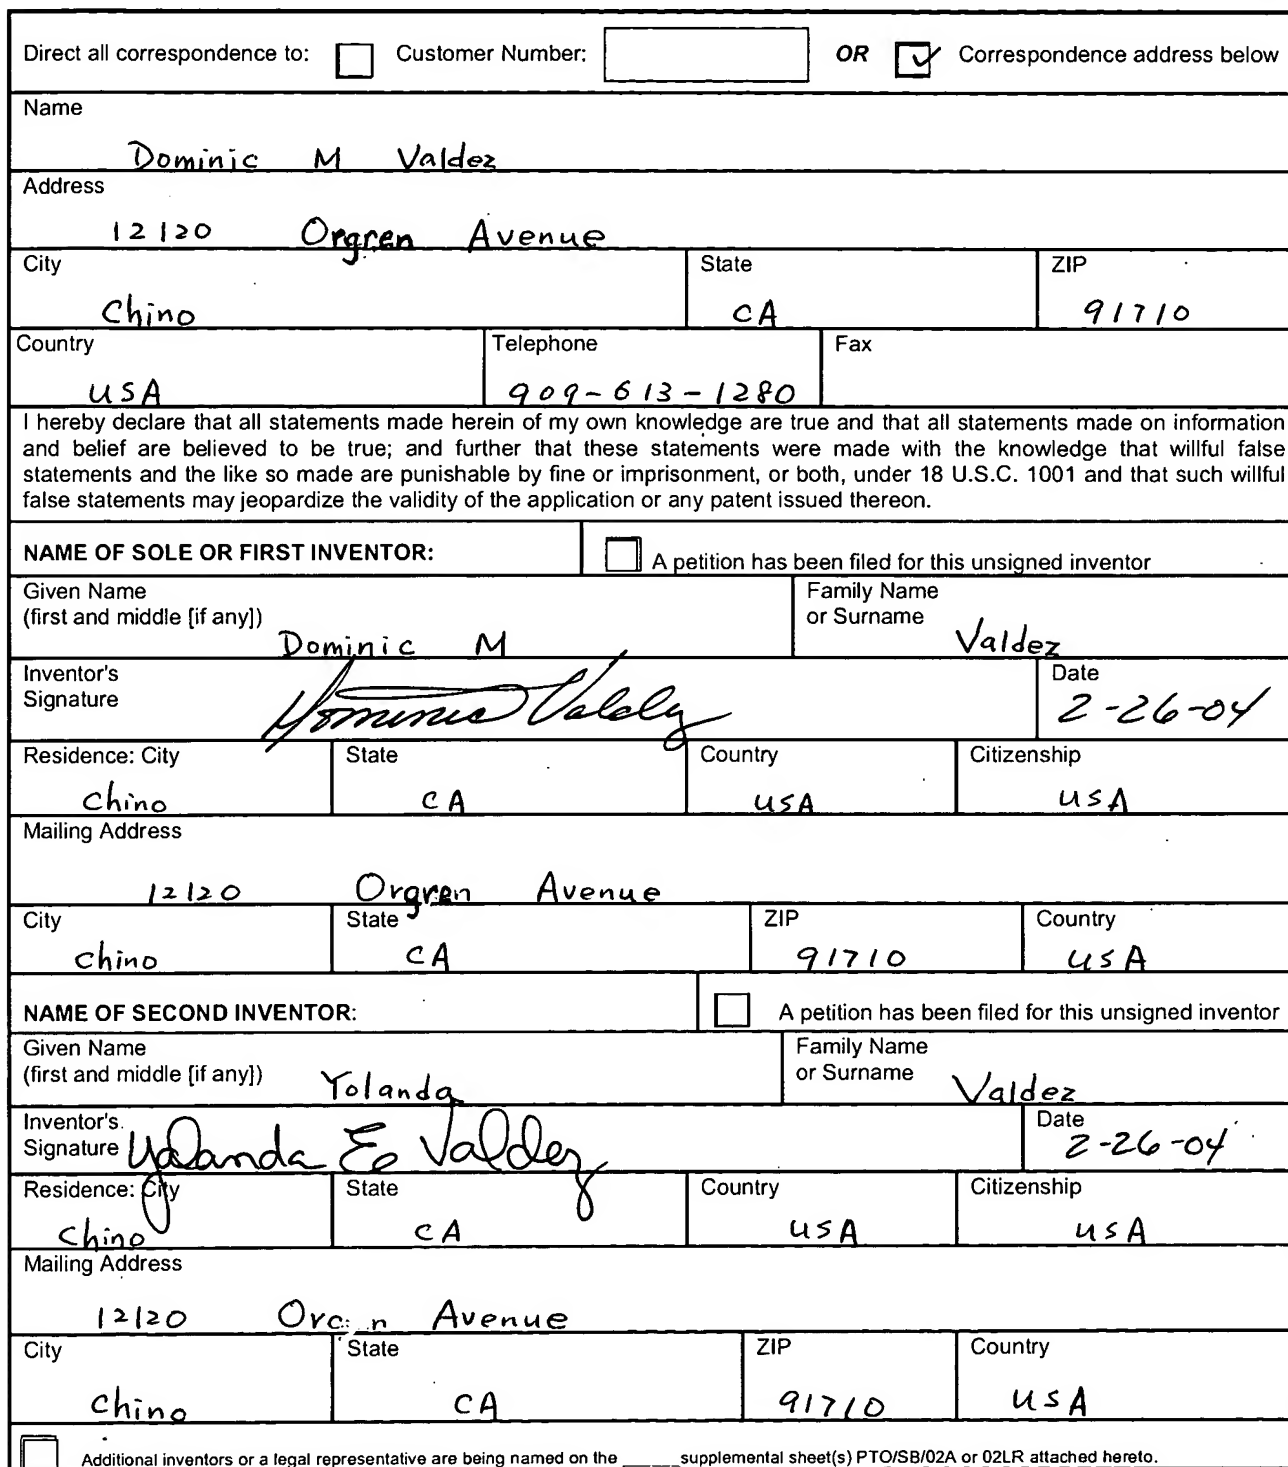 Direct all correspondence to: Customer Number: OR Correspondence address below
Name
Dominic M Valdez
Address
12120 Orgren Avenue
City State ZIP
Chino CA 91710
Country Telephone Fax
USA 909-613-1280
I hereby declare that all statements made herein of my own knowledge are true and that all statements made on information
and belief are believed to be true; and further that these statements were made with the knowledge that willful false
statements and the like so made are punishable by fine or imprisonment, or both, under 18 U.S.C. 1001 and that such willful
false statements may jeopardize the validity of the application or any patent issued thereon.
NAME OF SOLE OR FIRST INVENTOR: A petition has been filed for this unsigned inventor
Given Name Family Name
(first and middle [if any]) or Surname
Dominic M Valdez
Inventor's Date
Signature Dominic Valdez 2-26-04
Residence: City State Country Citizenship
Chino CA USA USA
Mailing Address
12120 Orgren Avenue
City State ZIP Country
Chino CA 91710 USA
NAME OF SECOND INVENTOR: A petition has been filed for this unsigned inventor
Given Name Family Name
(first and middle [if any]) Yolanda or Surname Valdez
Inventor's Date
Signature Yolanda E Valdez 2-26-04
Residence: City State Country Citizenship
Chino CA USA USA
Mailing Address
12120 Avenue
City State ZIP Country
Chino CA 91710 USA
Additional inventors or a legal representative are being named on the _____supplemental sheet(s) PTO/SB/02A or 02LR attached hereto.